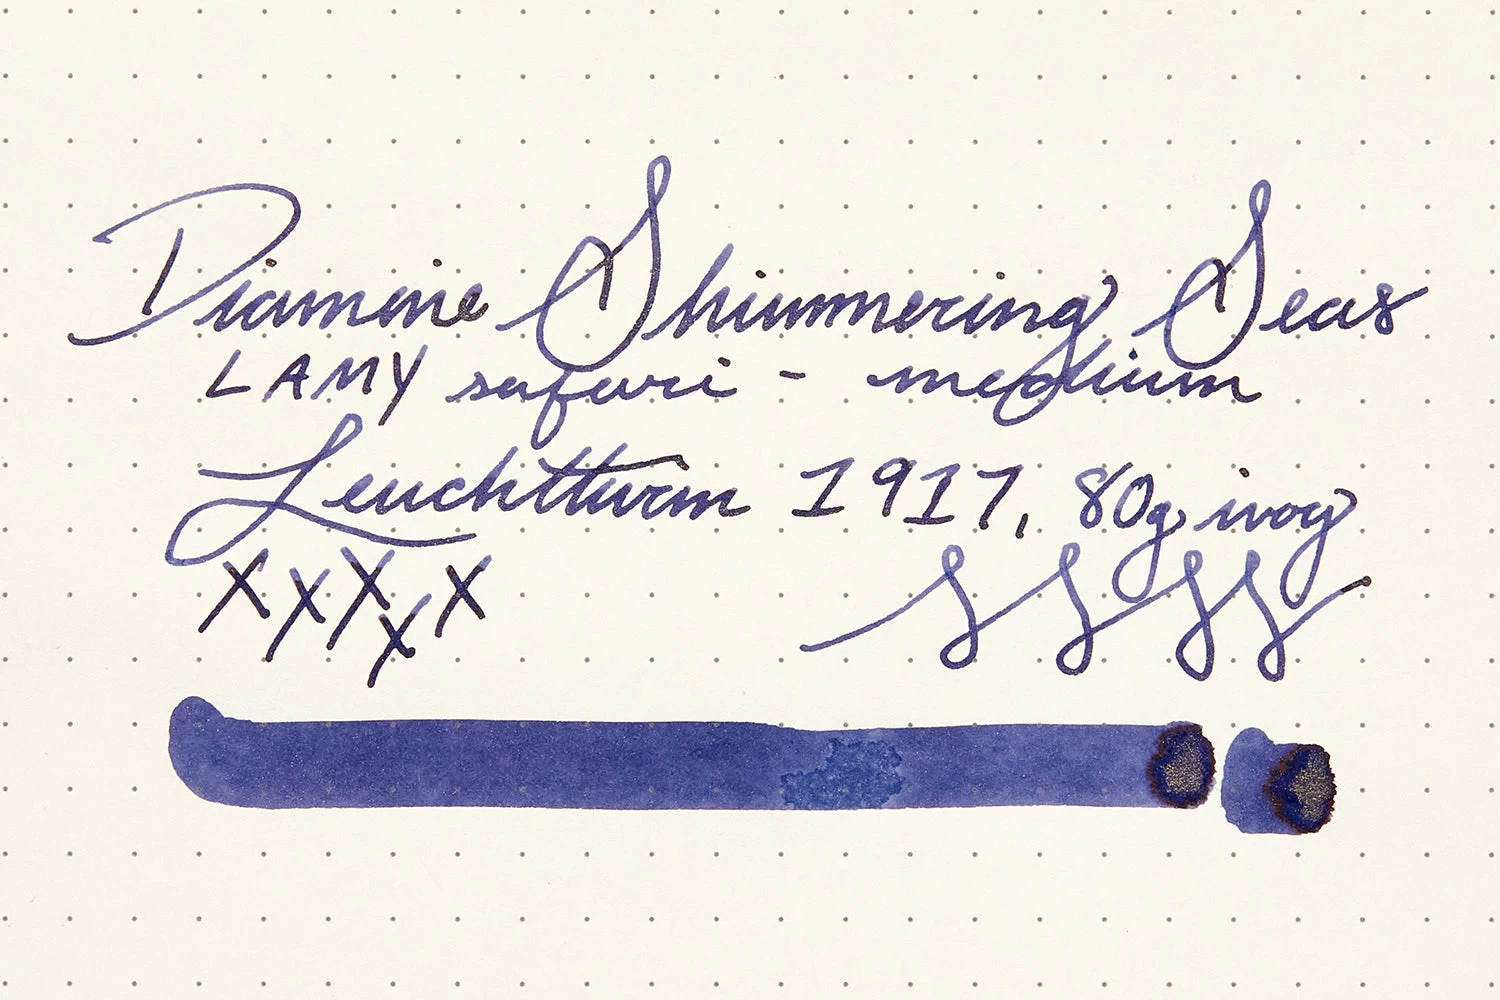 Diamine Shimmering Seas
LAMY safari - medium
Leuchtturm 1917, 80g ivory
xxxxx